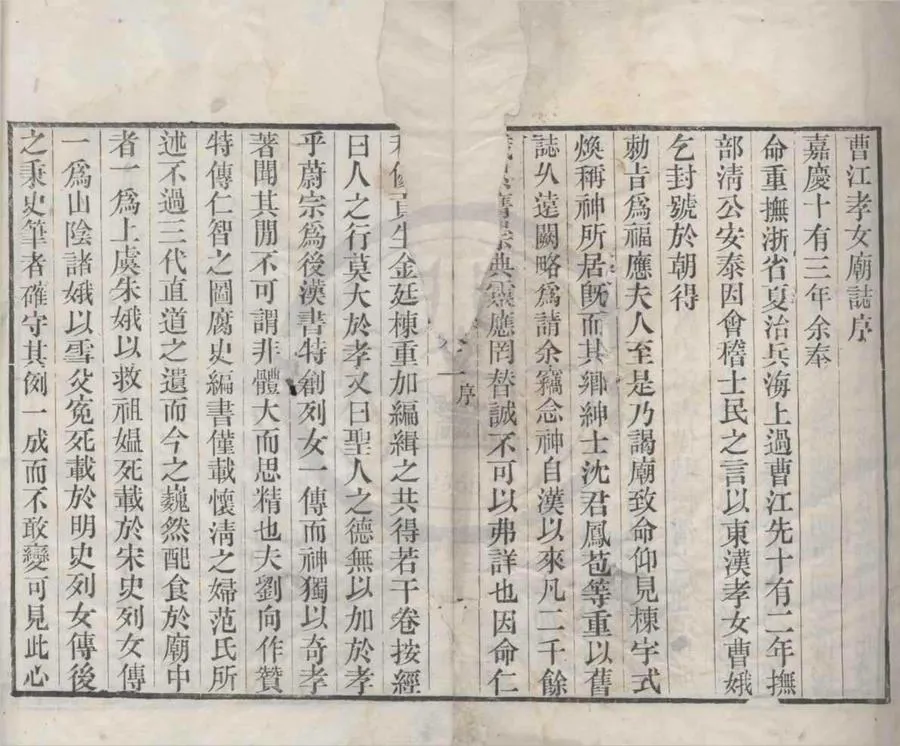 曹江孝女廟誌序
嘉慶十有三年余奉
命重撫浙省夏治兵海上過曹江先十有二年撫
部清公安泰因會稽士民之言以東漢孝女曹娥
乞封號於朝得
勅㫖爲福應夫人至是乃謁廟致命仰見棟宇式
煥稱神所居旣而其鄉紳士沈君鳳苞等重以舊
誌乆遠闕略爲請余竊念神自漢以來凡二千餘
典靈應罔替誠不可以弗詳也因命仁
序
一
金廷棟重加編緝之共得若干卷按經
曰人之行莫大於孝又曰聖人之德無以加於孝
乎蔚宗爲後漢書特創列女一傳而神獨以奇孝
著聞其閒不可謂非體大而思精也夫劉向作贊
特傳仁智之圖腐史編書僅載懷清之婦范氏所
述不過三代直道之遺而今之巍然配食於廟中
者一爲上虞朱娥以救祖媼死載於宋史列女傳
一爲山陰諸娥以雪父寃死載於明史列女傳後
之秉史筆者確守其例一成而不敢變可見此心